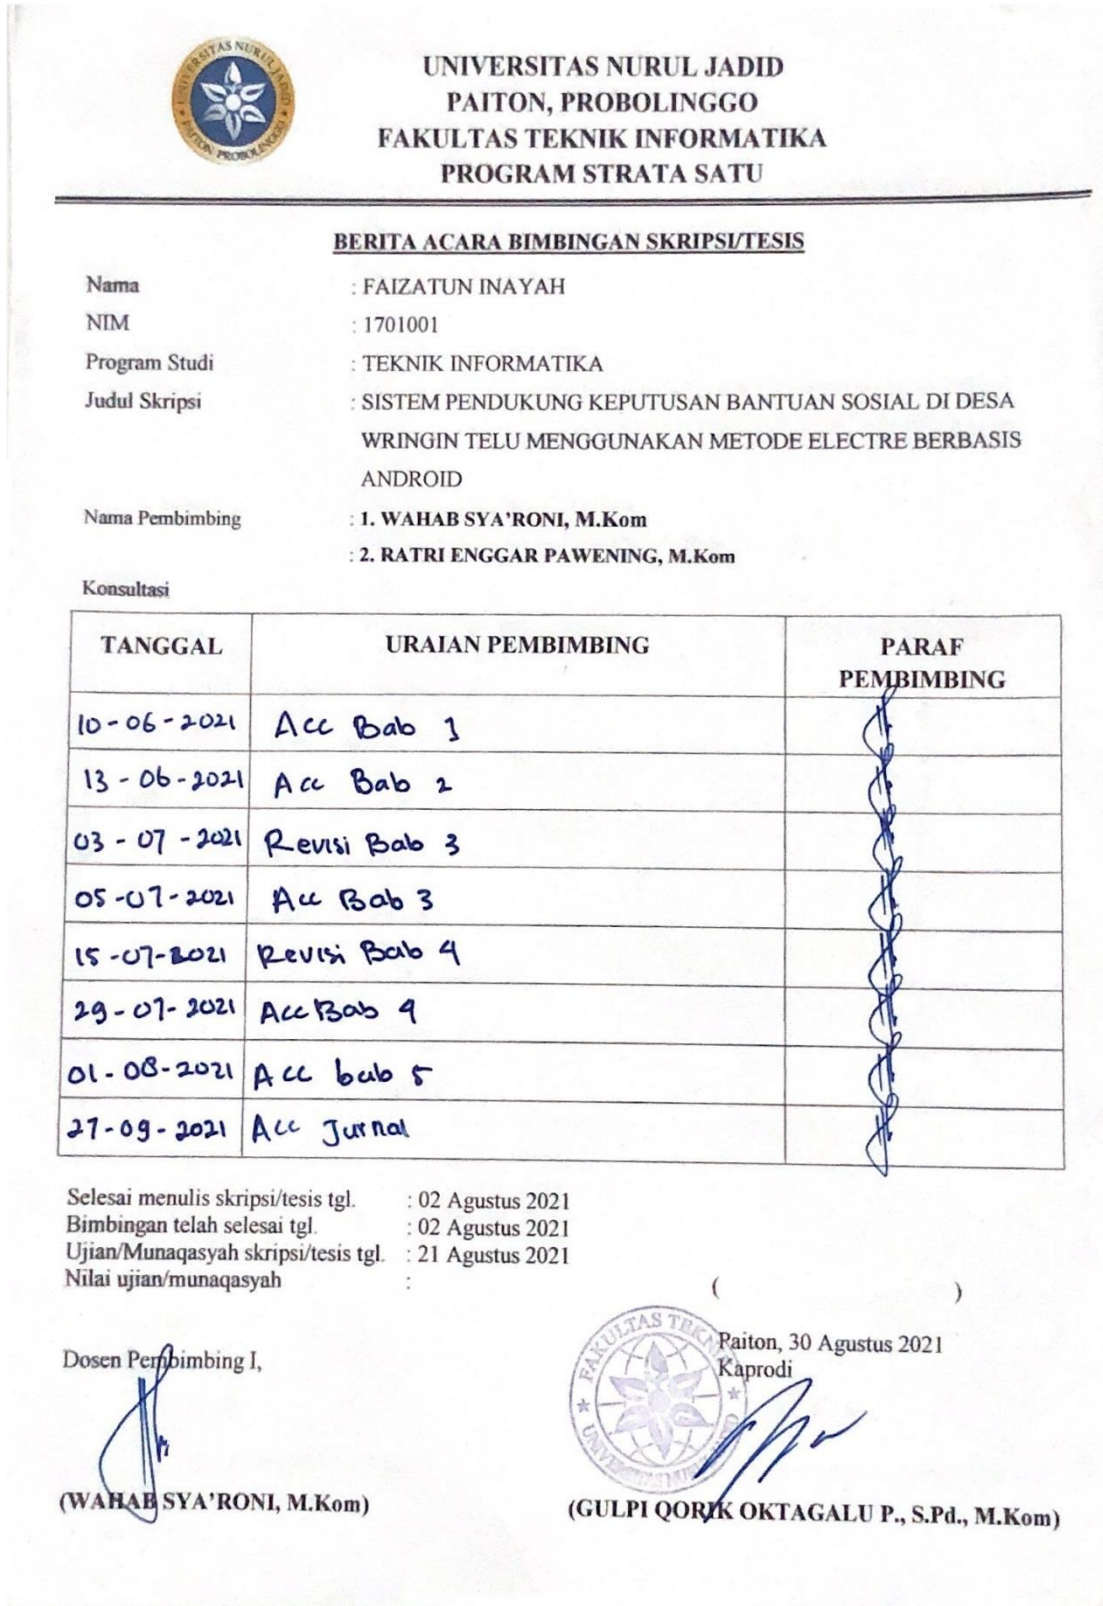 UNIVERSITAS NURUL JADID
PAITON PROBOLINGGO
UNIVERSITAS NURUL JADID
PAITON, PROBOLINGGO
FAKULTAS TEKNIK INFORMATIKA
PROGRAM STRATA SATU
BERITA ACARA BIMBINGAN SKRIPSI/TESIS
Nama : FAIZATUN INAYAH
NIM : 1701001
Program Studi : TEKNIK INFORMATIKA
Judul Skripsi : SISTEM PENDUKUNG KEPUTUSAN BANTUAN SOSIAL DI DESA
WRINGIN TELU MENGGUNAKAN METODE ELECTRE BERBASIS
ANDROID
Nama Pembimbing : 1. WAHAB SYA'RONI, M.Kom
: 2. RATRI ENGGAR PAWENING, M.Kom
Konsultasi
TANGGAL URAIAN PEMBIMBING PARAF
PEMBIMBING
10-06-2021 Acc Bab 1
13-06-2021 Acc Bab 2
03-07-2021 Revisi Bab 3
05-07-2021 Acc Bab 3
15-07-2021 Revisi Bab 4
29-07-2021 Acc Bab 4
01-08-2021 Acc bab 5
27-09-2021 Acc Jurnal
Selesai menulis skripsi/tesis tgl. : 02 Agustus 2021
Bimbingan telah selesai tgl. : 02 Agustus 2021
Ujian/Munaqasyah skripsi/tesis tgl. : 21 Agustus 2021
Nilai ujian/munaqasyah : ( )
FAKULTAS TEKNIK
UNIVERSITAS NURUL JADID
Paiton, 30 Agustus 2021
Dosen Pembimbing I, Kaprodi
(WAHAB SYA'RONI, M.Kom) (GULPI QORIK OKTAGALU P., S.Pd., M.Kom)